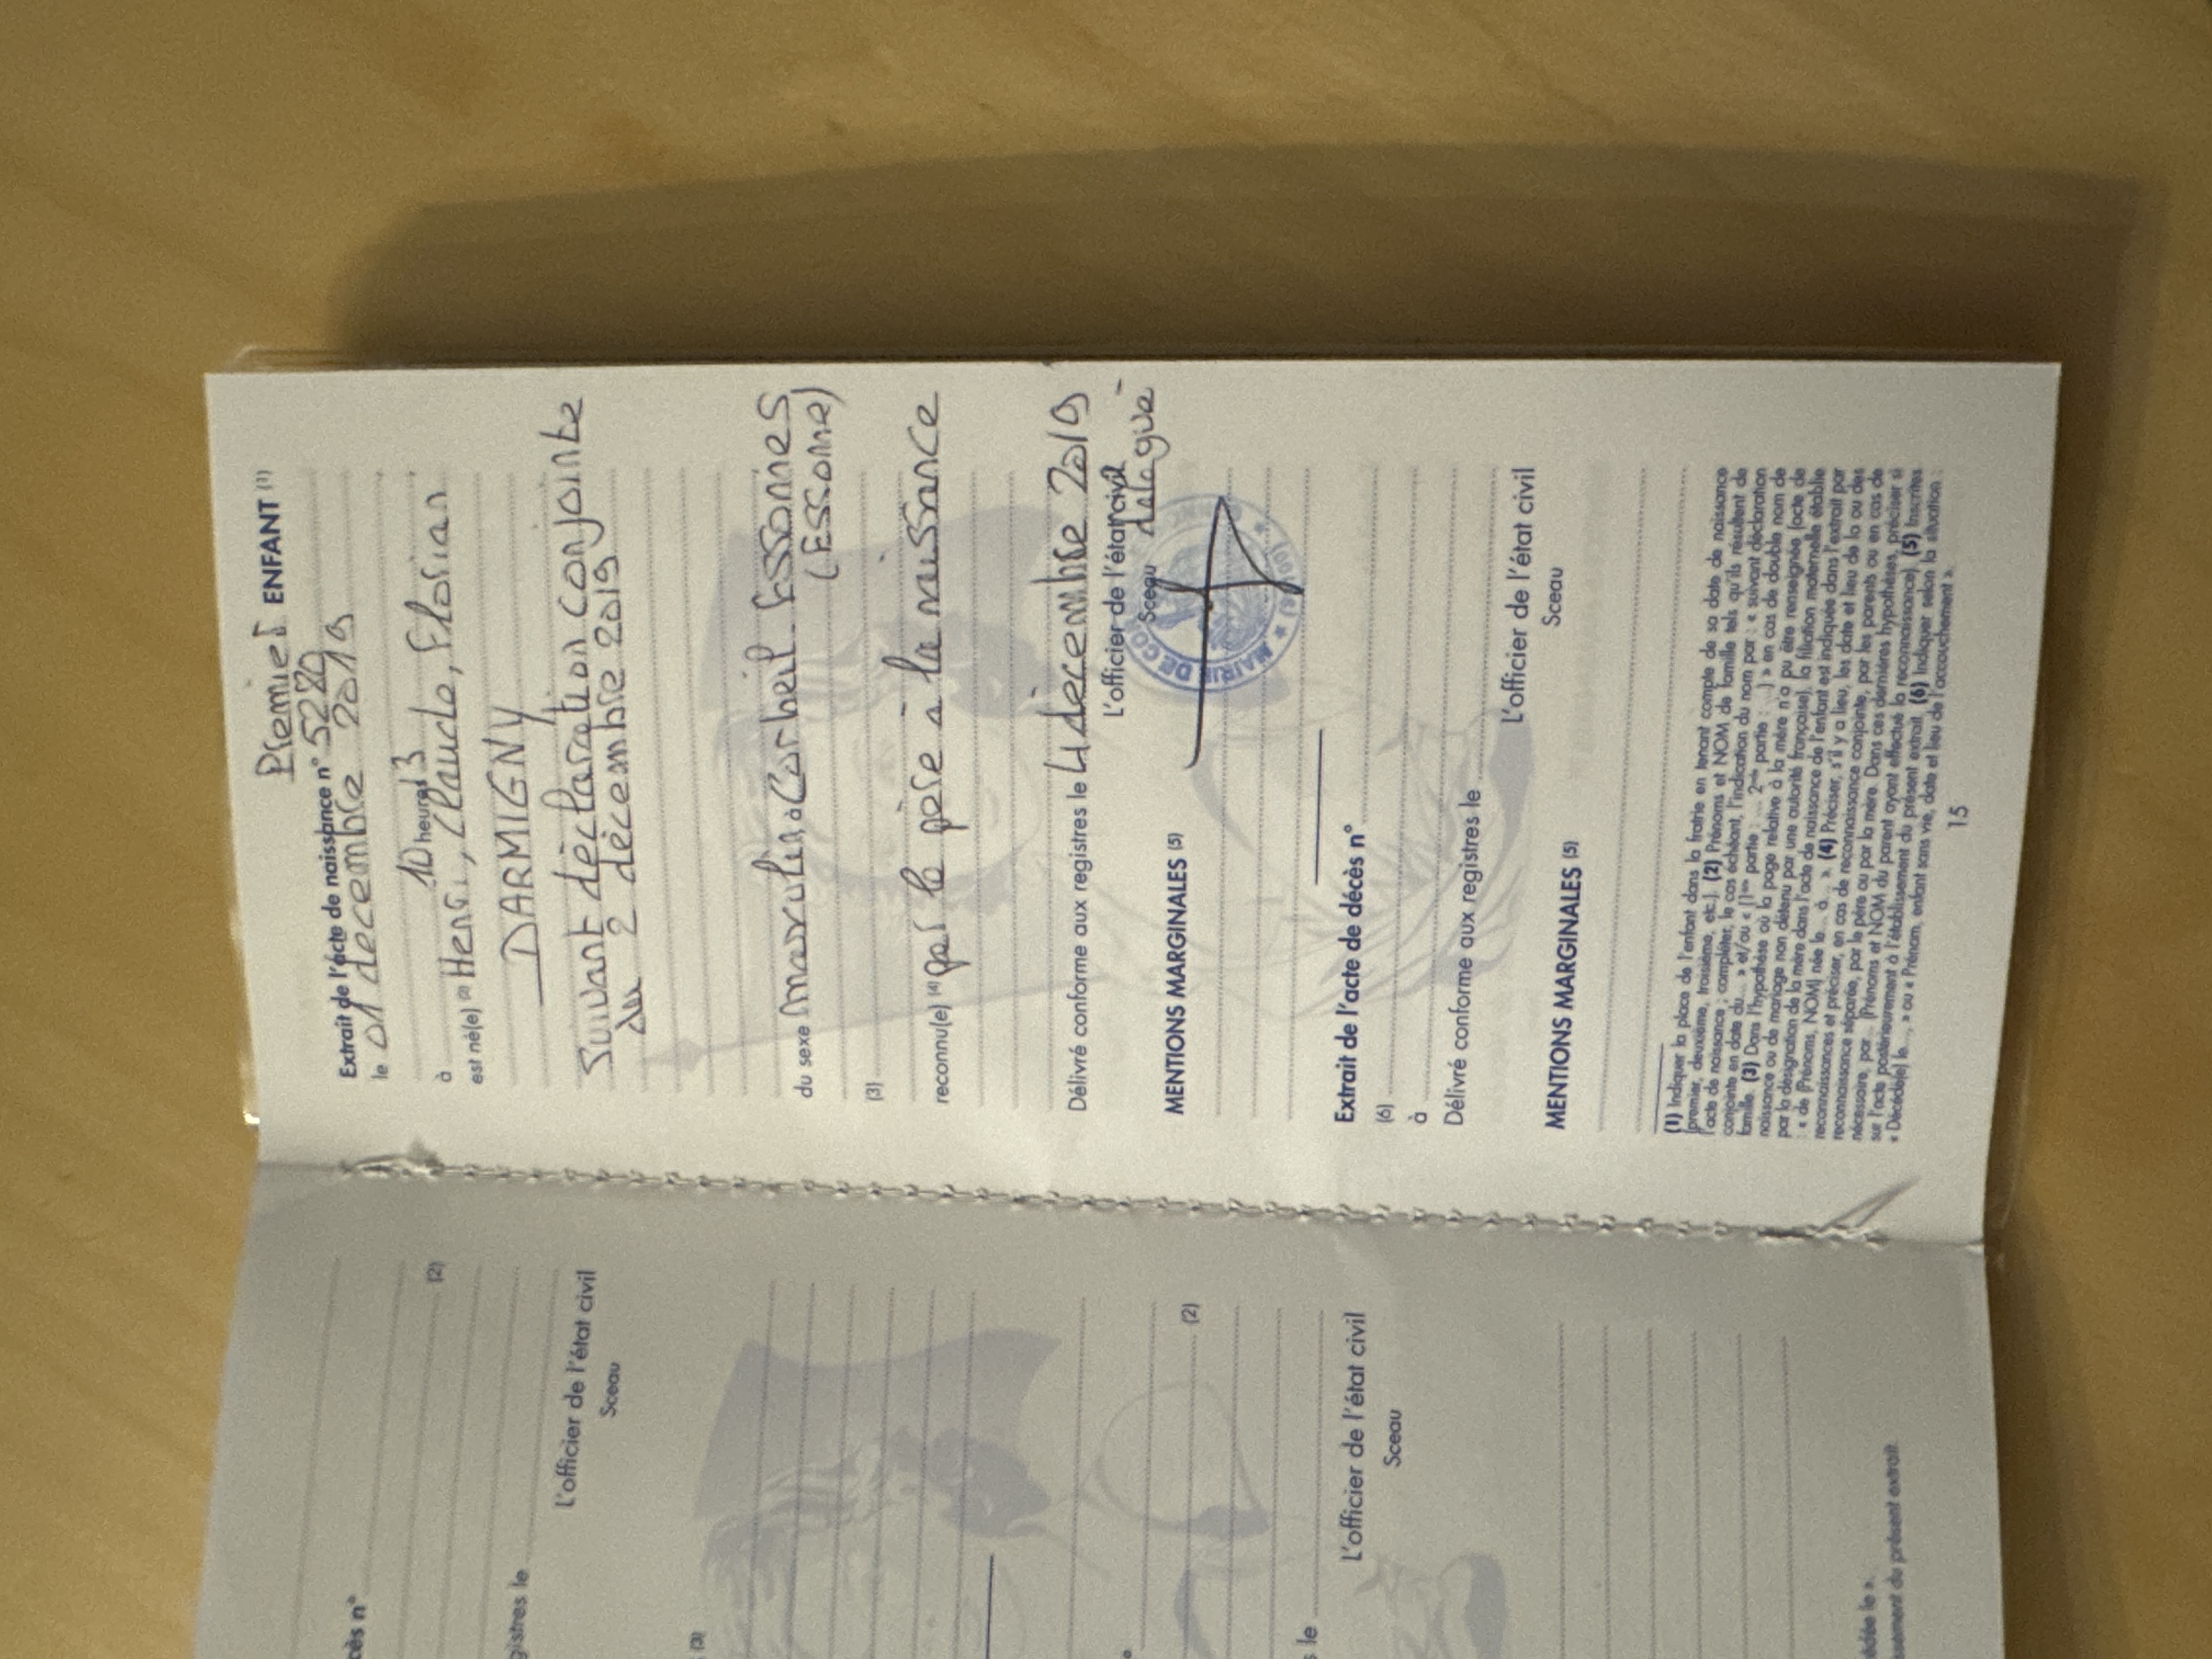 Premier ENFANT (1)
Extrait de l'acte de naissance n° 5220
le 01 décembre 2019
à 10 heures 13
est né(e) (2) Henri, Claude, Florian
DARMIGNY
Suivant déclaration conjointe
du 2 décembre 2019
du sexe masculin, à Corbeil-Essonnes
(Essonne)
(3)
reconnu(e) (4) par le père à la naissance
Délivré conforme aux registres le 4 décembre 2019
L'officier de l'état civil
délégué
Sceau
MAIRIE DE
MENTIONS MARGINALES (5)
Extrait de l'acte de décès n°
(6)
à
Délivré conforme aux registres le
L'officier de l'état civil
Sceau
MENTIONS MARGINALES (5)
(1) Indiquer la place de l'enfant dans la fratrie en tenant compte de sa date de naissance
(premier, deuxième, troisième, etc.). (2) Prénoms et NOM de famille tels qu'ils résultent de
l'acte de naissance ; compléter, le cas échéant, l'indication du nom par : « suivant déclaration
conjointe en date du... » et/ou « (1re partie : ... 2nde partie : ...) » en cas de double nom de
famille. (3) Dans l'hypothèse où la page relative à la mère n'a pu être renseignée (acte de
naissance ou de mariage non détenu par une autorité française), la filiation maternelle établie
par la désignation de la mère dans l'acte de naissance de l'enfant est indiquée dans l'extrait par
: « de (Prénoms, NOM) née le... à... ». (4) Préciser, s'il y a lieu, les date et lieu de la ou des
reconnaissances et préciser, en cas de reconnaissance conjointe, par les parents ou en cas de
reconnaissance séparée, par le père ou par la mère. Dans ces dernières hypothèses, préciser si
nécessaire, par... (Prénoms et NOM du parent ayant effectué la reconnaissance). (5) Inscrites
sur l'acte postérieurement à l'établissement du présent extrait. (6) Indiquer selon la situation :
« Décédé(e) le..., » ou « Prénom, enfant sans vie, date et lieu de l'accouchement ».
15
cès n°
(2)
gistres le
L'officier de l'état civil
Sceau
(3)
(2)
le
L'officier de l'état civil
Sceau
édée le ».
sement du présent extrait.